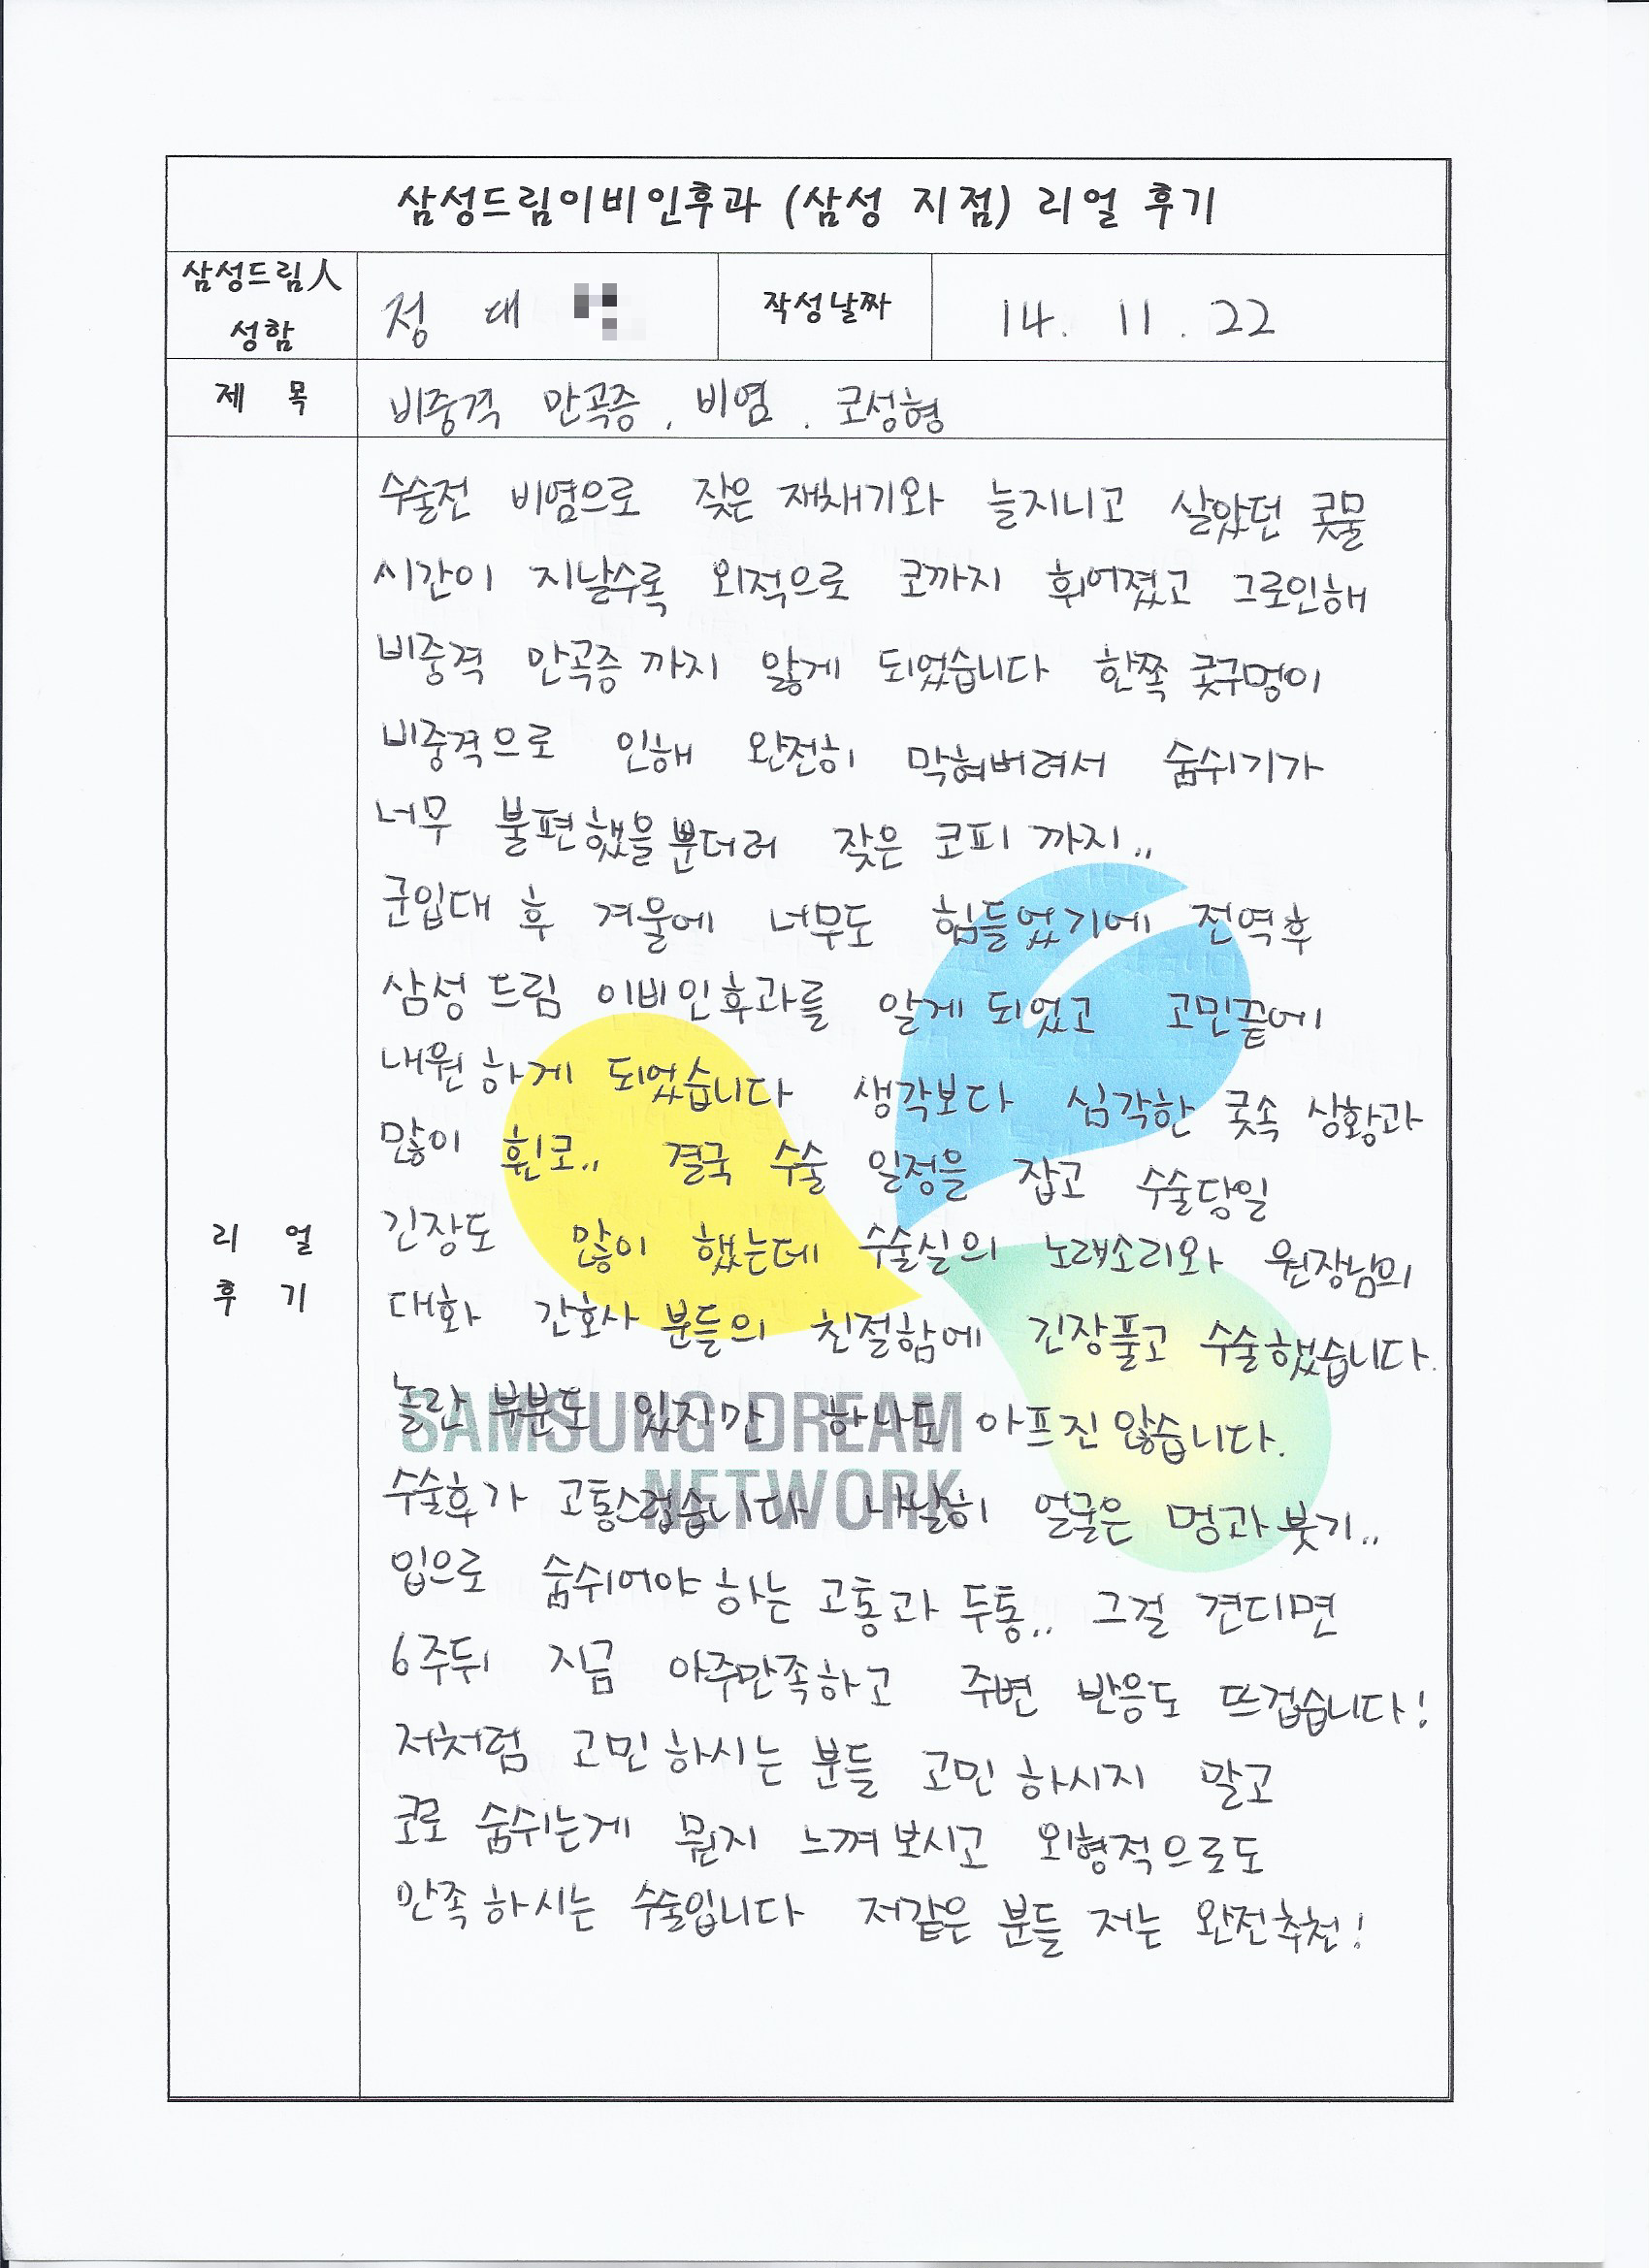 삼성드림이비인후과 (삼성 지점) 리얼 후기
삼성드림人 성함
정 대
작성날짜
14. 11. 22
제 목
비중격 만곡증, 비염, 코성형
리 얼 후 기
수술전 비염으로 잦은 재채기와 늘지니고 살았던 콧물
시간이 지날수록 외적으로 코까지 휘어졌고 그로인해
비중격 만곡증 까지 앓게 되었습니다 한쪽 콧구멍이
비중격으로 인해 완전히 막혀버려서 숨쉬기가
너무 불편했을뿐더러 잦은 코피 까지..
군입대 후 겨울에 너무도 힘들었기에 전역후
삼성 드림 이비인후과를 알게 되었고 고민끝에
내원 하게 되었습니다 생각보다 심각한 콧속 상황과
많이 휜코.. 결국 수술 일정을 잡고 수술당일
긴장도 많이 했는데 수술실의 노래소리와 원장님의
대화 간호사 분들의 친절함에 긴장풀고 수술했습니다.
놀란 부분도 있지만 하나도 아프진 않습니다.
수술후가 고통스럽습니다 나날히 얼굴은 멍과 붓기..
입으로 숨쉬어야 하는 고통과 두통.. 그걸 견디면
6주뒤 지금 아주만족하고 주변 반응도 뜨겁습니다!
저처럼 고민 하시는 분들 고민 하시지 말고
코로 숨쉬는게 뭔지 느껴 보시고 외형적으로도
만족 하시는 수술입니다 저같은 분들 저는 완전추천!
SAMSUNG DREAM
NETWORK